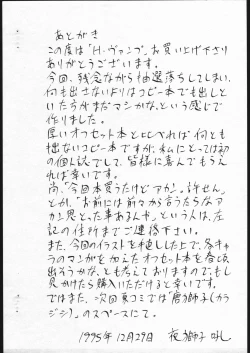 あとがき
この度は「H.ヴァンプ」お買い上げ下さり
ありがとうございます。
今回、残念ながら抽選落ちしてしまい、
何も出さないよりはコピー本でも出しと
いたらがまだマシかな、という感じで
作りました。
厚いオフセット本と比べれば何とも
拙ないコピー本ですが、私にとっては初
の個人誌でして、皆様に喜んでもらえ
れば幸いです。
尚、「今回本買うたけどアカン。許せん」
とか、「お前には前々から言うたろなア
カン思とった事あるんや」という人は、左
記の住所までご連絡下さい。
また、今回のイラストを植したし上で、各キャ
ラのマンガを加えたオフセット本を春頃
出そうかな、とも考えてありますので、もし
見かけたら購入いただけると幸いです。
ではまた、次回夏コミでは「唐獅子(カラ
ジシ)」のスペースにて。
1995年12月29日 夜獅子